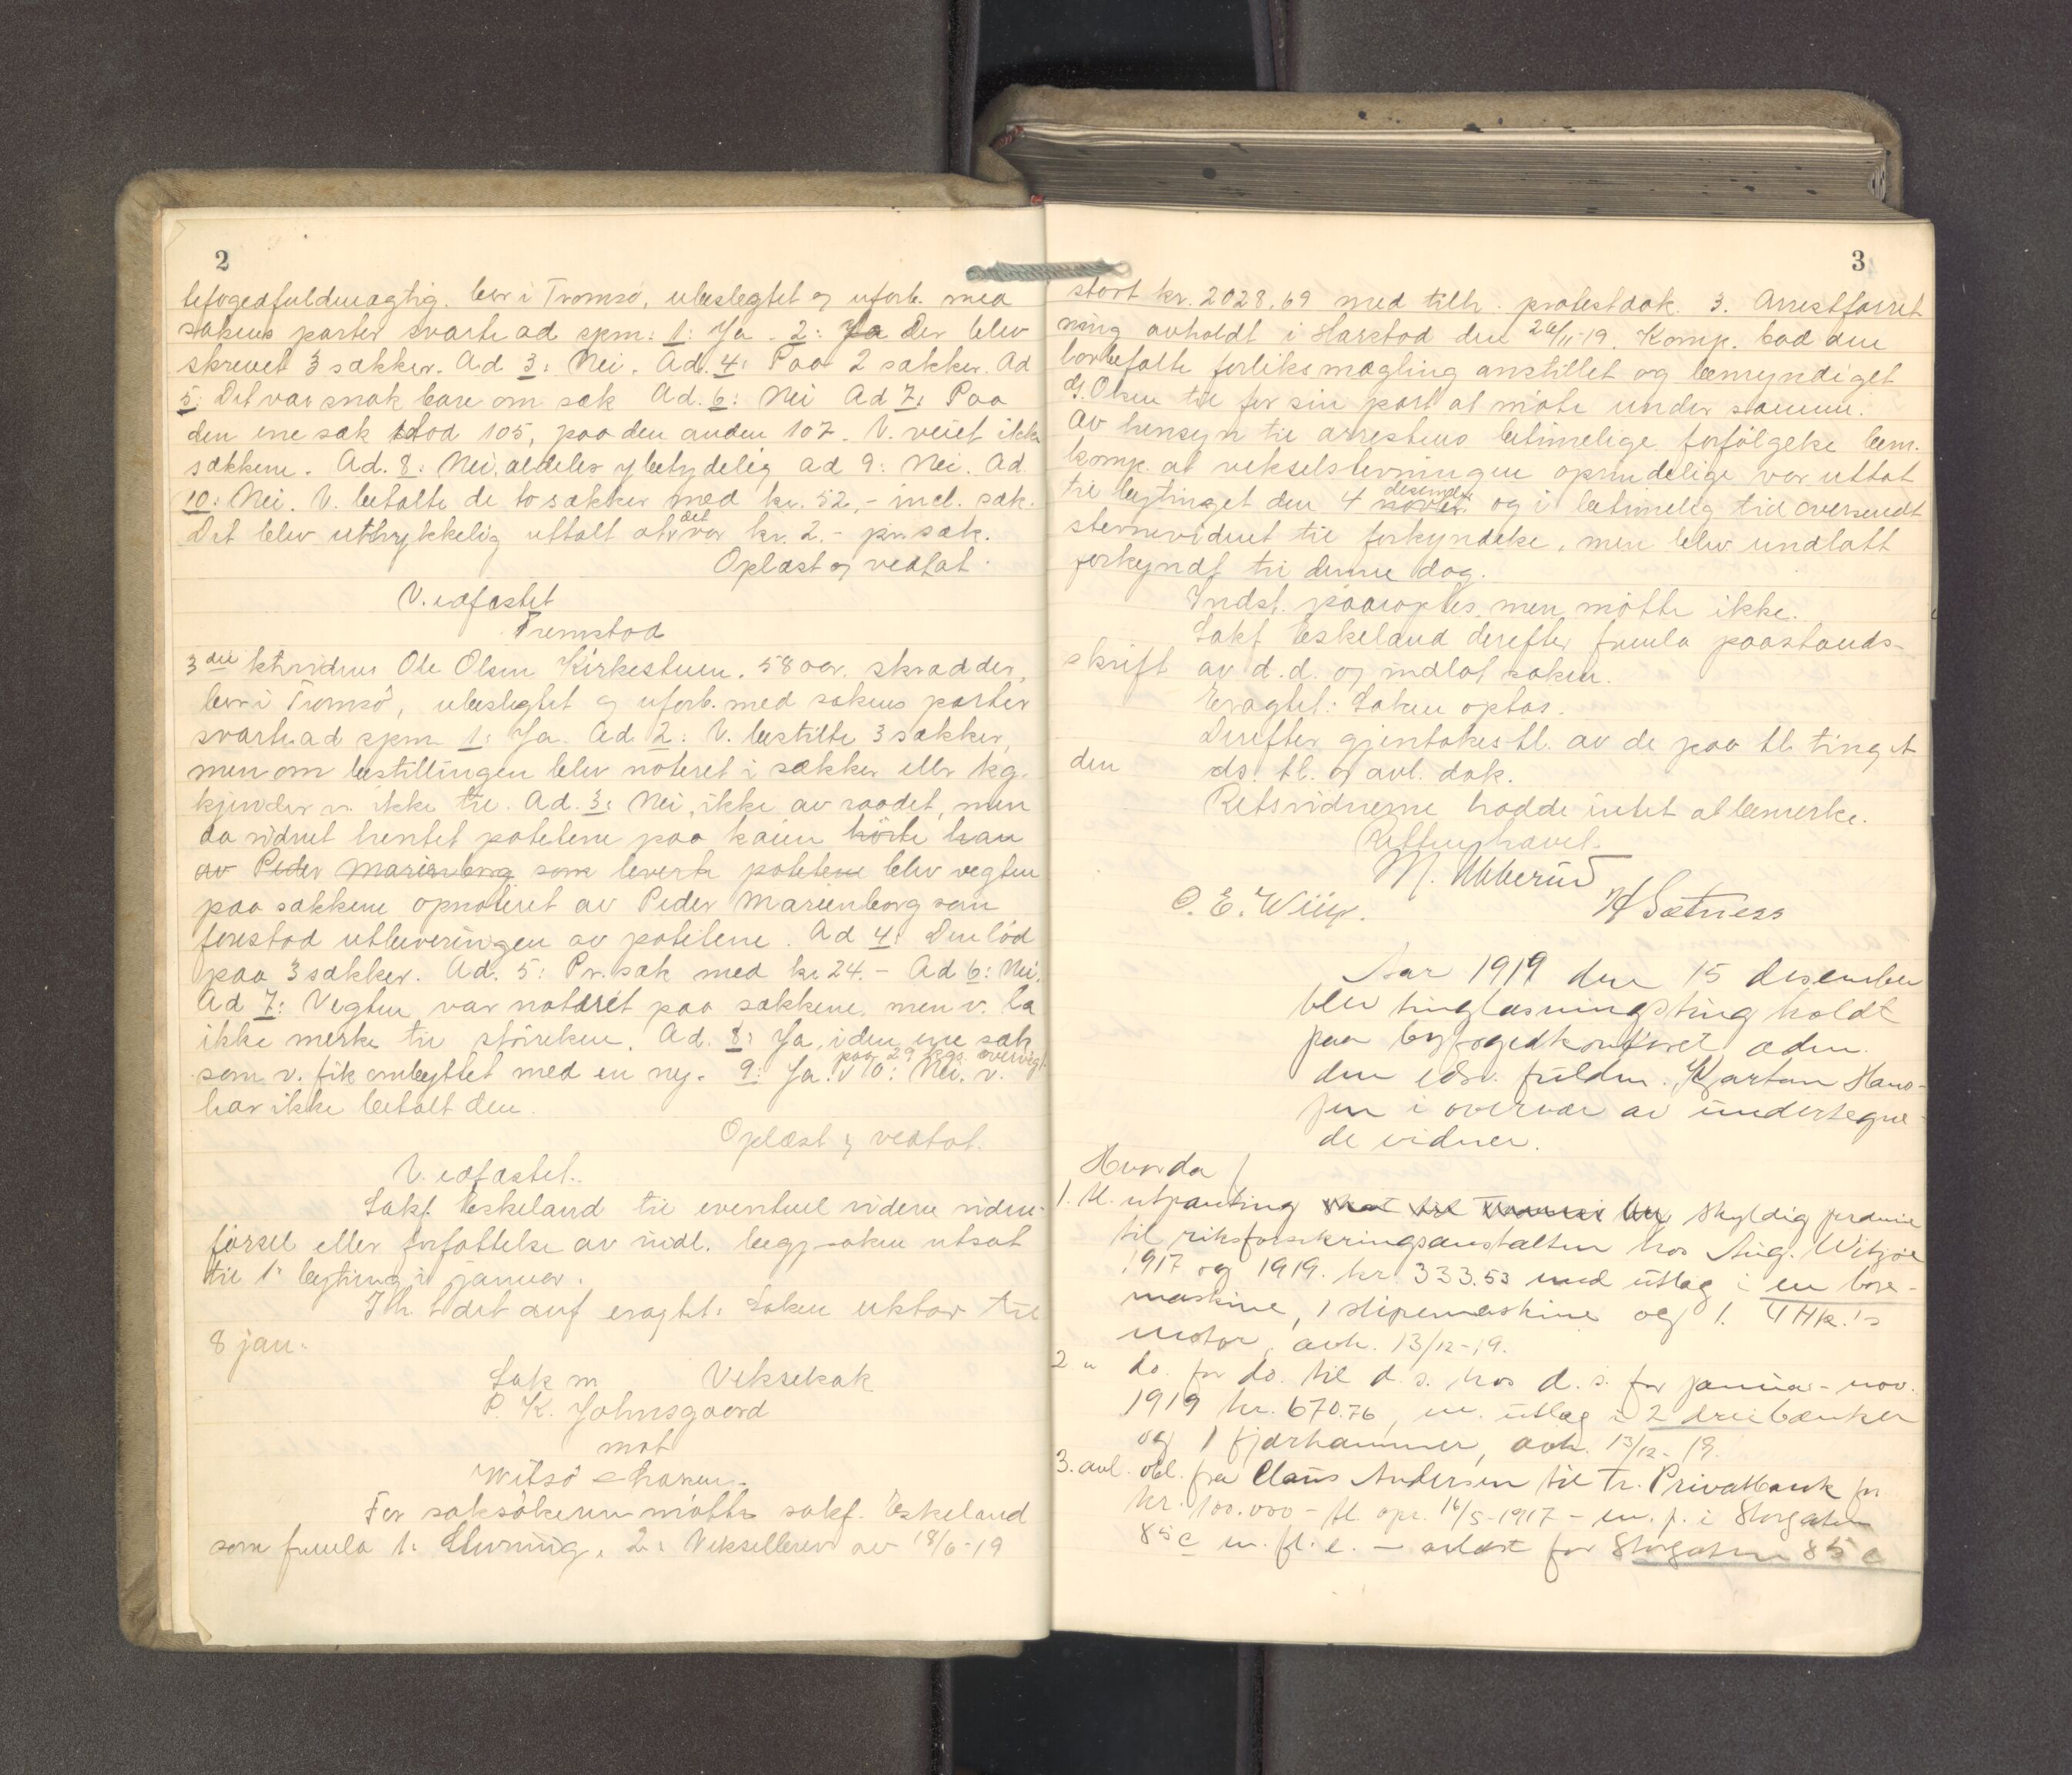 2
befogedfuldmægtig. bor i Tromsö, ubeslegtet og uforb. med
sakens parter svarte ad spm: 1: Ja. 2: Ja Der blev
skrevet 3 sækker. Ad 3: Nei. Ad. 4: Paa 2 sækker. Ad
5: Det var snak bare om sæk Ad. 6: Nei Ad 7: Paa
den ene sæk stod 105, paa den anden 107. V. veiet ikke
sækkene. Ad. 8: Nei, aldeles ubetydelig ad 9: Nei. Ad
10: Nei. V. betalte de to sækker med kr. 52,- incl. sæk.
Det blev uttrykkelig uttalt at det var kr. 2.- pr. sæk.
Oplæst og vedtat.
V. edfæstet
Fremstod
3die vidne Ole Olsen Kirkestuen. 58 aar, skrædder,
bor i Tromsö, ubeslegtet og uforb. med sakens parter
svarte ad spm 1: Ja. Ad 2: V. bestilte 3 sækker,
men om bestillingen blev noteret i sækker eller kg.
kjender v. ikke til. Ad. 3: Nei, ikke av raadet, men
da vidnet hentet potetene paa kaien hörte han
av Peder Marienborg som leverte potetene blev vegten
paa sækkene opnoteret av Peder Marienborg som
forestod utleveringen av potetene. Ad 4: Den löd
paa 3 sækker. Ad. 5: Pr. sæk med kr 24.- Ad 6: Nei.
Ad 7: Vegten var noteret paa sækkene, men v. la
ikke merke til störrelsen. Ad. 8: Ja, i den ene sæk
som v. fik ombyttet med en ny. 9: Ja. paa 29 kgs. overvegt. 10: Nei. v.
har ikke betalt den.
Oplæst og vedtat.
V. edfæstet.
Sakf. Eskeland til eventuel videre vidne-
försel eller forfattelse av indl. begj. saken utsat
til 1. byting i januar.
I h. t. det anf eragtet: Saken utstaar til
8 jan.
Sak m Vekselsak
P. K. Johnsgaard
mot
Witsö
For saksökeren mötte sakf. Eskeland
som fremla 1: Stevning, 2: Vekselbrev av 18/6-19
3
stort kr. 2028,69 med tilh. protestdok. 3. Arrestforret
ning avholdt i Harstad den 26/11-19. Komp. bad den
lovbefalte forliksmægling anstillet og bemyndiget
G. Olsen til for sin part at möte under samme.
Av hensyn til arrestens betimelige forfölgelse bem.
komp. at vekselstevningen oprindelige var uttat
til bytinget den 4 novbr. desember og i betimelig tid oversendt
stevnevidnet til forkyndelse, men blev undlatt
forkyndt til denne dag.
Indst. paaroptes, men mötte ikke.
Sakf Eskeland derefter fremla paastands-
skrift av d.d. og indlot saken.
Eragtet: Saken optas.
Derefter gjentokes tl. av de paa tl. tinget
den ds. tl. og avl. dok.
Retsvidnerne hadde intet at bemerke.
Retten hævet.
M. Ubberud
O. E. Wiig. H Sætness
Aar 1919 den 15 desember
blev tinglæsningsting holdt
paa byfogedkontoret, adm.
den edsv. fuldm. Kjartan Hans-
sen i overvær av undertegne-
de vidner.
Hvorda
1. tl. utpanting skat til Tromsö by skyldig præmie
til riksforsikringsanstalten hos Aug. Witzöe
1917 og 1919. kr. 333.53 med utlæg i en bore-
maskine, 1 slipemaskine og 1. 4 HK.'s
motor, avh. 13/12-19.
2 " do. for do. til d. s. hos d. s. for januar-nov.
1919 kr. 670.76, m. utlæg i 2 dreiebænker
og 1 fjærhammer, avh. 13/12-19.
3. avl. obl. fra Claus Andersen til Tr. Privatbank for
kr. 100.000 - tl. opr. 16/5-1917 - m. p. i Storgaten
85 c m. fl. e. - avlæst for Storgaten 85 c